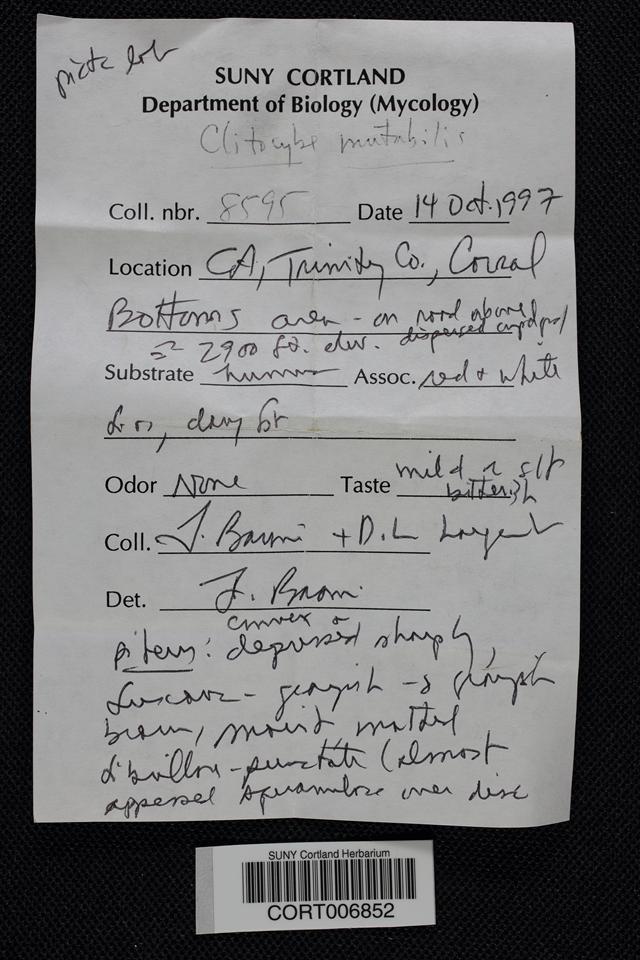 SUNY CORTLAND
Department of Biology (Mycology)
Clitocybe mutabilis
Coll. nbr. 8595 Date 14 Oct. 1997
Location CA, Trinity Co., Corral
Bottoms area - on road above
dispersed
≈ 2900 ft. elev.
Substrate humus Assoc. red & white
fir, doug fir
Odor None Taste mild
bitterish
Coll. T. Baroni + D.L. Largent
Det. T. Baroni
convex or
pileus: depressed sharply,
fuscous - grayish - grayish
brown, moist, matted
fibrillose - punctate (almost
appressed squamulose over disc
SUNY Cortland Herbarium
CORT006852